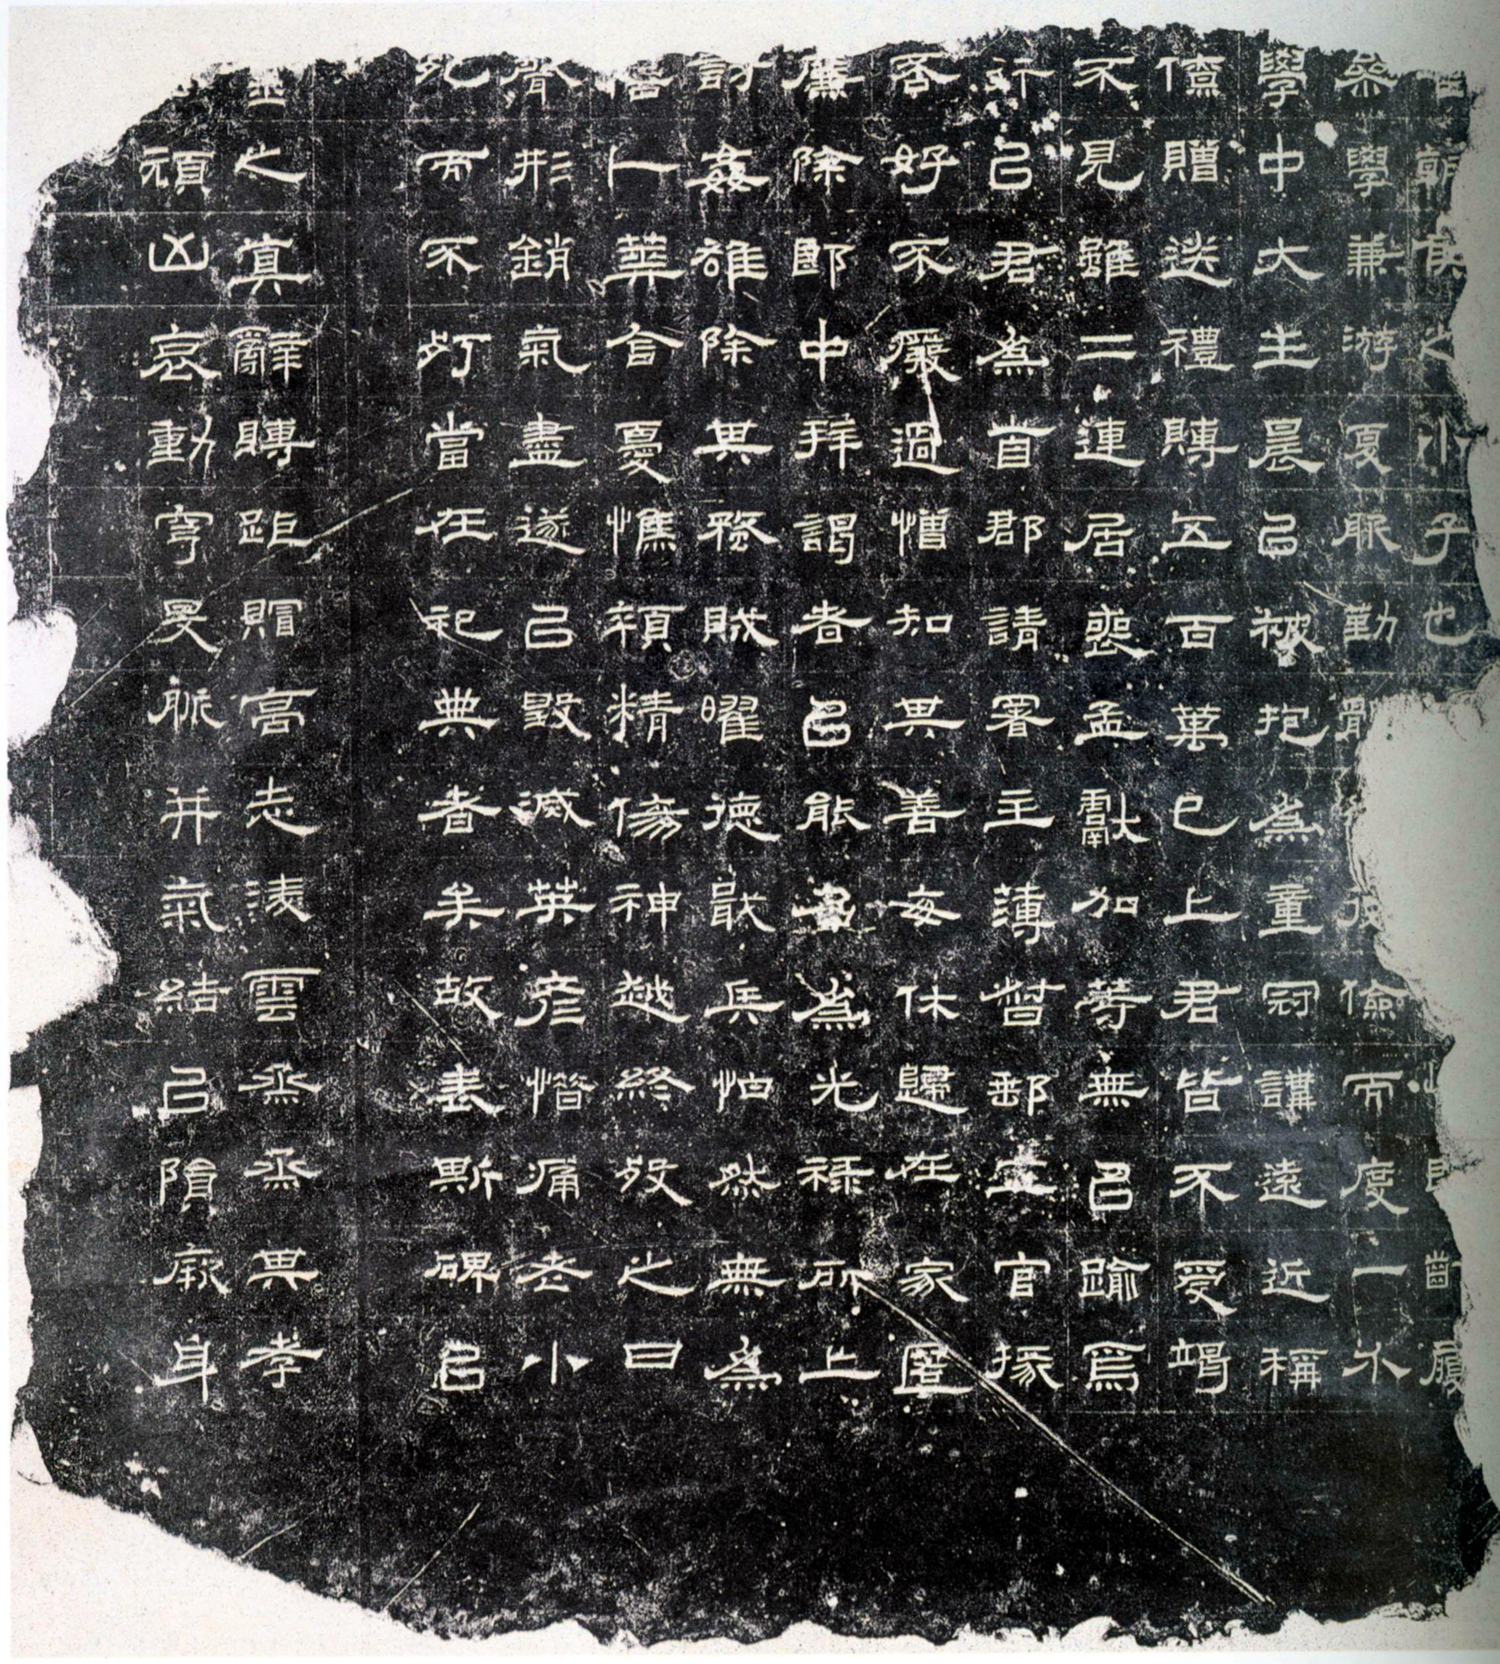 朝侯之小子也齒履
叅學兼游夏服勤體儉而度一介
學中大主晨以被抱為童冠講遠近稱
僚贈送禮賻五百萬已上君皆不受竭
不見雖二連居喪孟獻加等無以踰焉
計以君為首郡請署主薄督郵五官掾
否好不嚴過憎知其善每休歸在家匿
廉除郎中拜謁者以能為光祿所上
討姦雄除其務賊曜德戢兵怕然無為
咨卜葬含憂憔顇精傷神越終歿之日
聲形銷氣盡遂以毀滅英彥惜痛老小
死而不朽當在祀典者矣故表斯碑以
之真辭賻距賵高志淩雲烝烝其孝
頑凶哀動穹旻脈并氣結以隕厥身